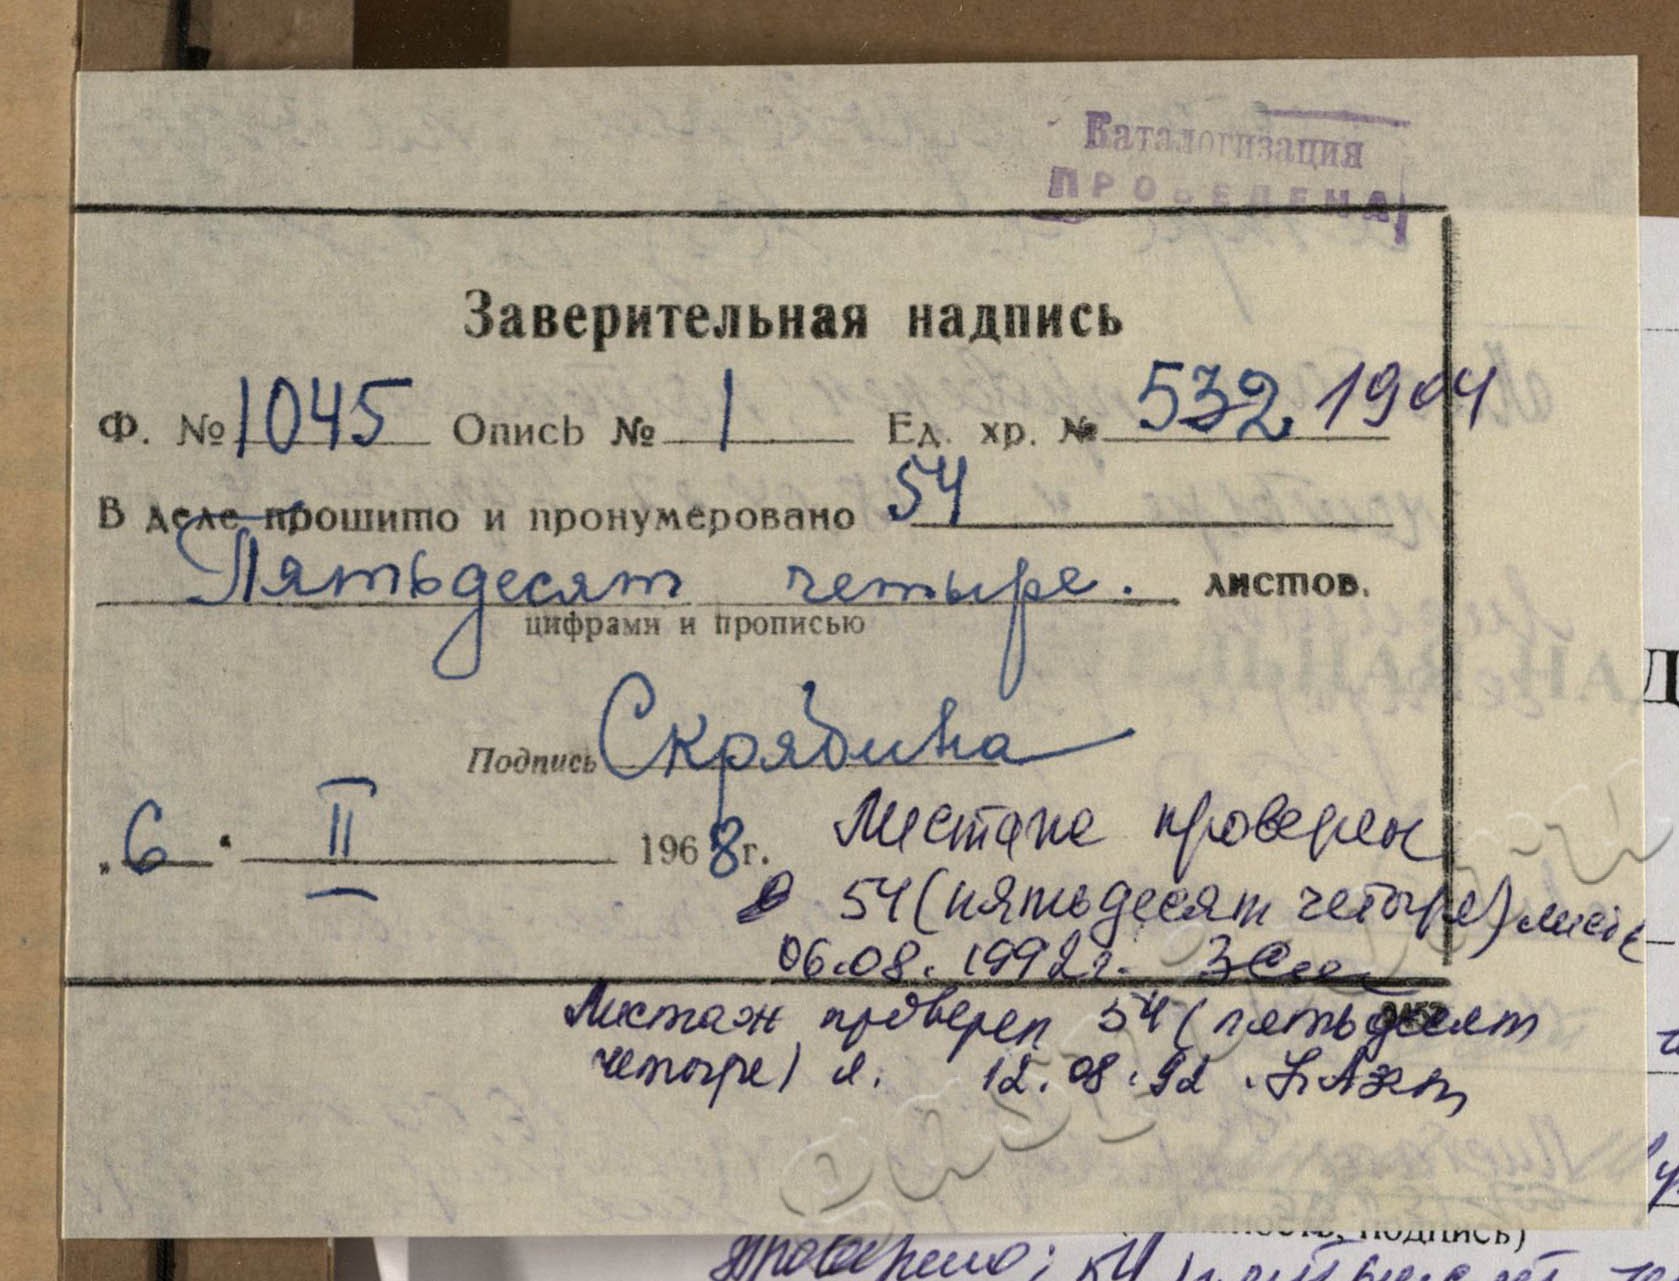 Каталогизация
ПРОВЕДЕНА
Заверительная надпись
Ф. № 1045 Опись № 1 Ед. хр. № 532 1904
В деле прошито и пронумеровано 54
Пятьдесят четыре. листов.
цифрами и прописью
Подпись Скрябина
„6“ II 1968 г.
проверен
54 (пятьдесят четыре)
06.08.1992г.
Листаж проверен 54 (пятьдесят
четыре) л. 12.08.92.
подпись)
Проверено: 54